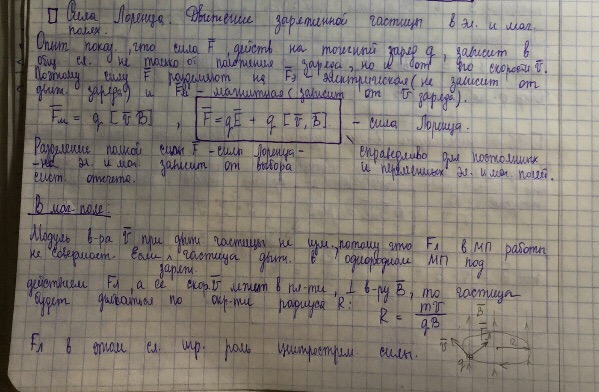 Сила Лоренца. Движение заряженной частицы в эл. и маг.
полях.
Опыт показ., что сила F̅, действ на точечный заряд q, зависит в
общ сл. не только от положения заряда, но и от его скорости v̅.
Поэтому силу F̅ разделяют на F̅э - электрическая (не зависит от
движ. заряда) и F̅м - магнитная (зависит от v̅ заряда).
F̅м = q [v̅,B̅] , F̅=qE̅ + q [v̅,B̅] - сила Лоренца.
Разделение полной силы F̅ - силы Лоренца -
справедливо для постоянных
-на эл. и маг. зависит от выбора
и переменных эл. и маг. полей.
сист. отсчета.
В маг. поле:
Модуль в-ра v̅ при движ частицы не изм, потому что Fл в МП работы
не совершает. Если частица движ. в однородном МП под
заряж.
действием Fл, а её скор v̅ лежит в пл-ти, ⊥ в-ру B̅, то частица
будет двигаться по окр-ти радиуса R:
R = mv/qB
Fл в этом сл. игр. роль центрострем силы.
B̅
v̅
q
F̅
R